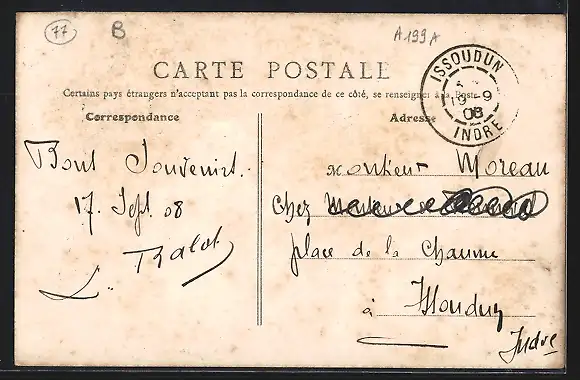 77
B
A199A
CARTE POSTALE
Certains pays étrangers n'acceptant pas la correspondance de ce côté, se renseigner à la Poste
Correspondance
Adresse
ISSOUDUN
19 - 9
08
INDRE
Bons Souvenirs.
17. Sept. 08
L. Ralot
Monsieur Moreau
Chez
place de la Chaume
à Issoudun
Indre